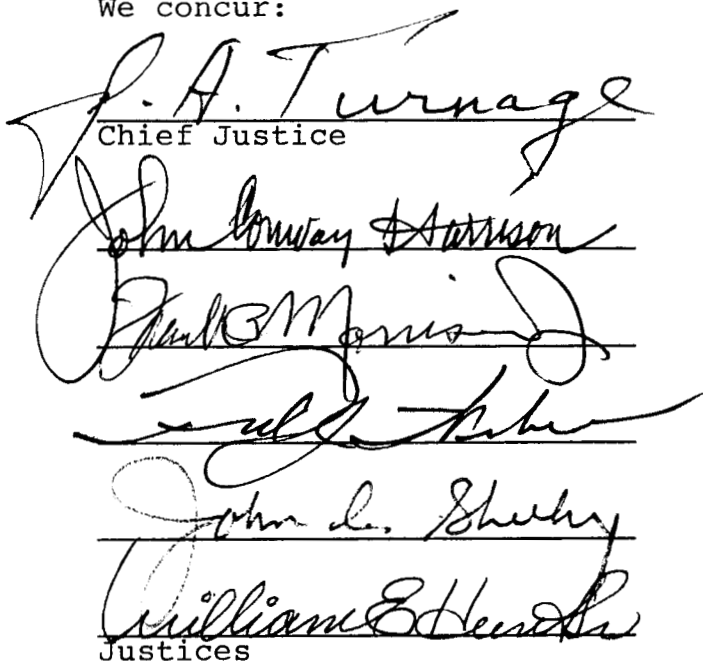 We concur:
J. A. Turnage
Chief Justice
John Conway Harrison
Frank B Morrison J
John C. Sheehy
William E Hunt Sr
Justices